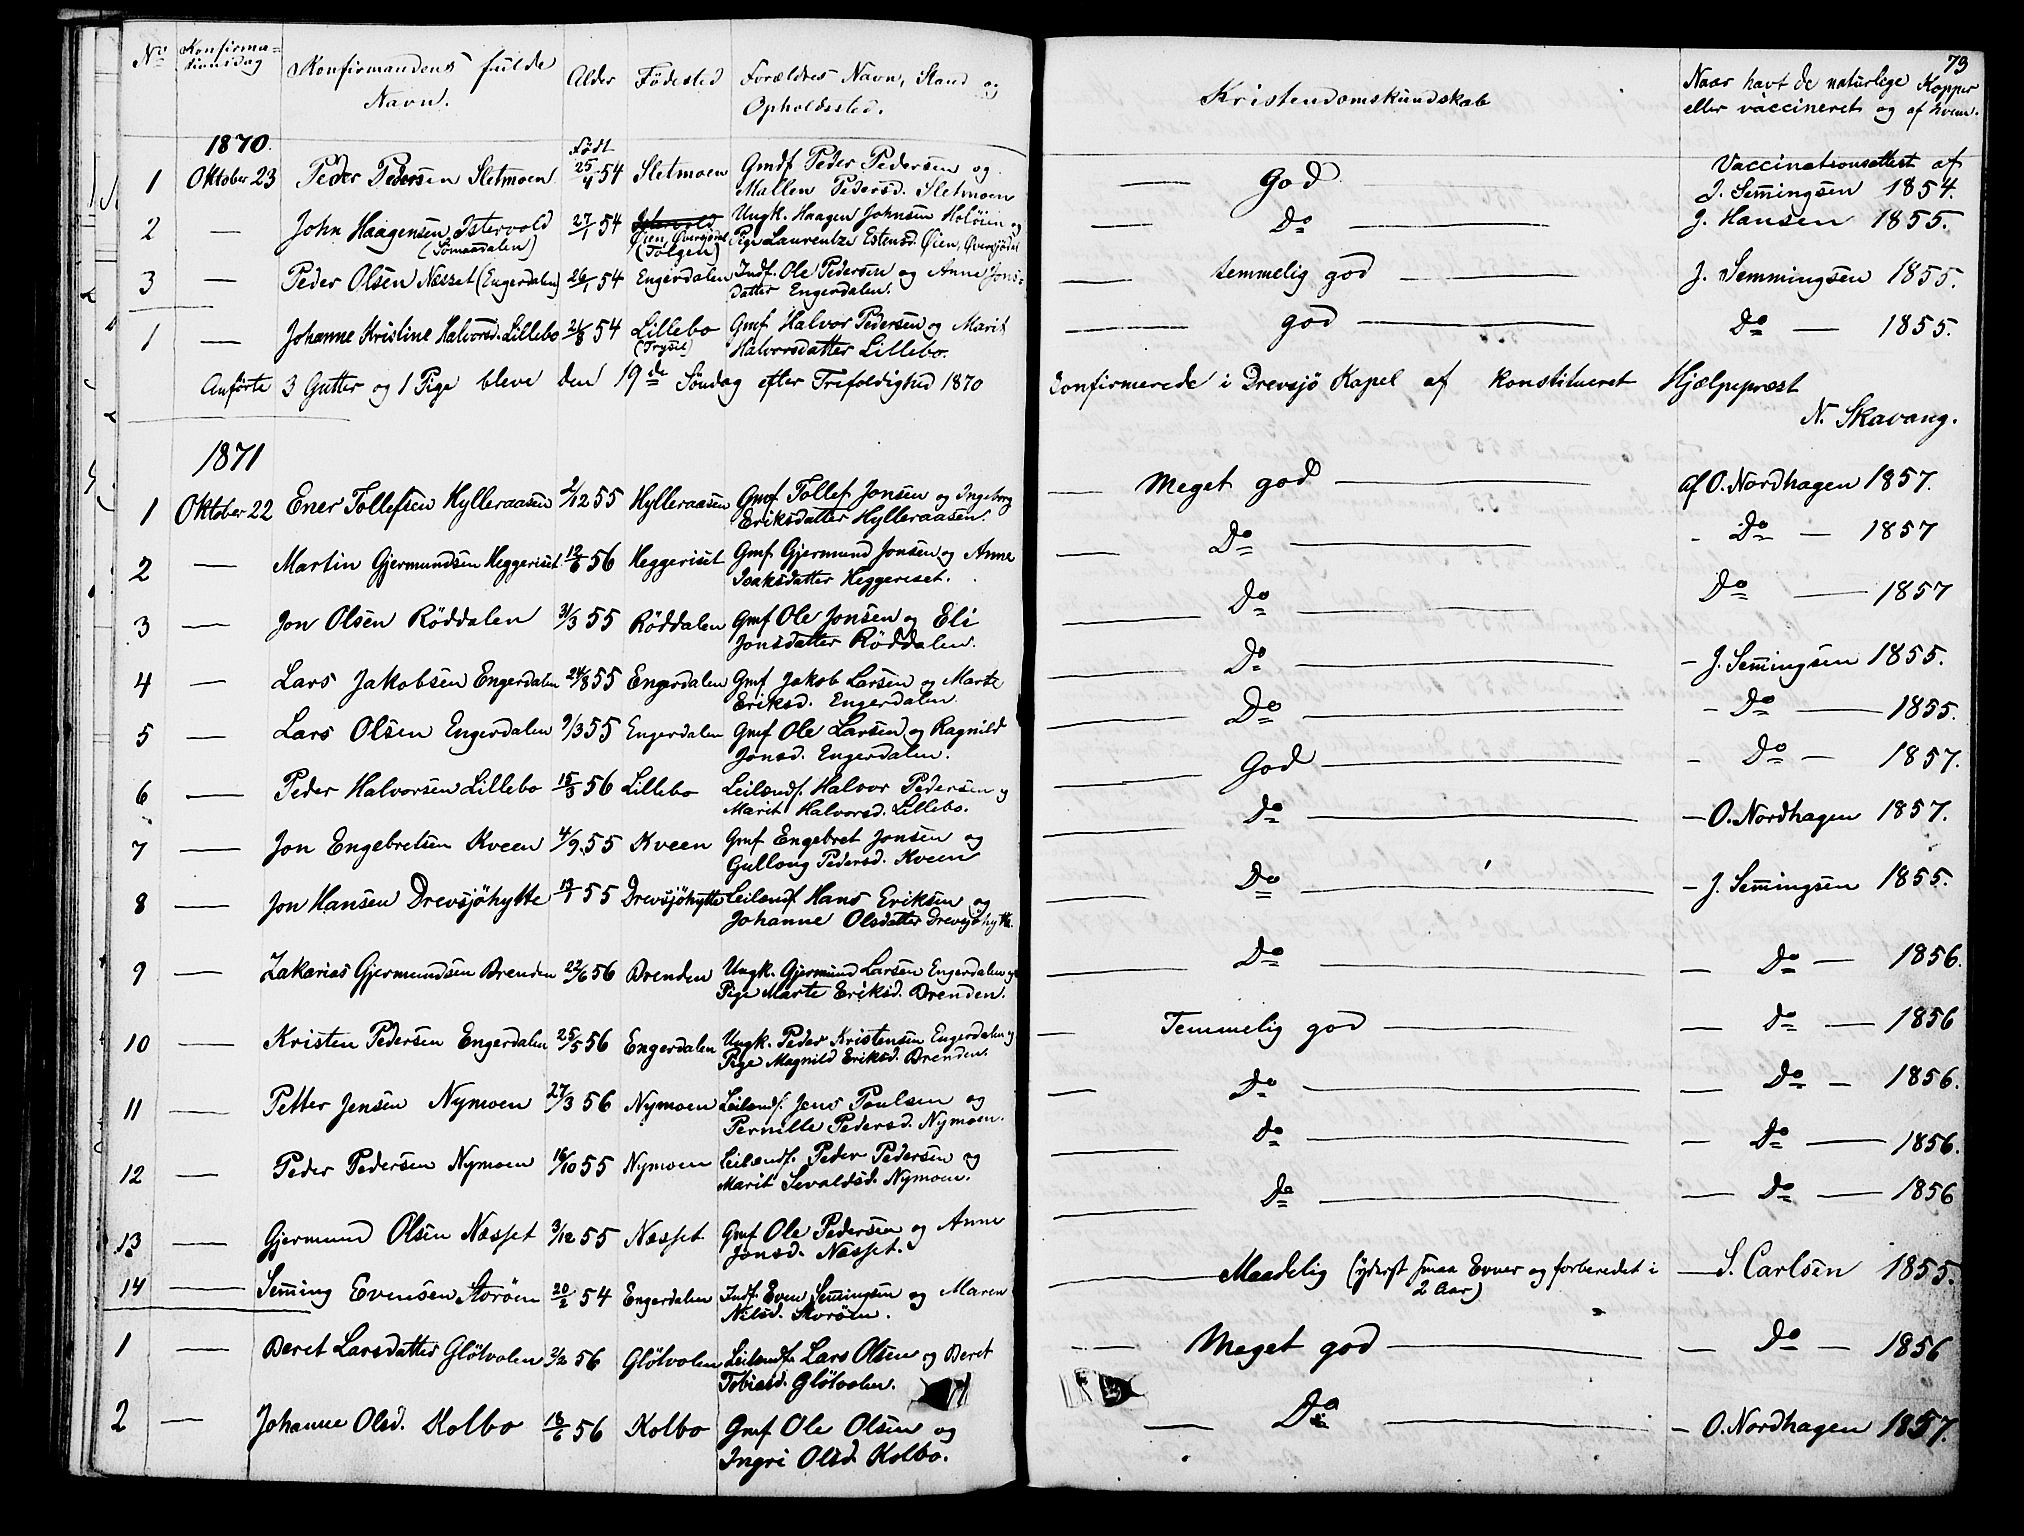 73
No Konfirmationsdag Konfirmandens fulde Navn. Alder Fødested Forældres Navn, Stand og Opholdssted. Kristendomskundskab Naar havt de naturlige Kopper eller vaccineret og af hvem.
1870. Født
1 Oktober 23 Peder Pedersen Sletmoen 25/4 54 Sletmoen Gmdf Peder Pedersen og Mallen Pedersd. Sletmoen — God Vaccinationsattest af J. Semingsen 1854.
2 — John Haagensen Istervold (Sømaadalen) 27/1 54 Istervold Øien, Øversjødal (Tolgen) Ungk. Haagen Johnsen Holøien og Pige Laurentze Estensd. Øien, Øversjødal — Do — J. Hansen 1855.
3 — Peder Olsen Næsset (Engerdalen) 26/1 54 Engerdalen Indf. Ole Pedersen og Anne Jonsdatter Engerdalen. — temmelig god — J. Semmingsen 1855.
1 — Johanne Kristine Halvorsd. Lillebo 21/8 54 Lillebo (Trysil) Gmf Halvor Pedersen og Marit Halvorsdatter Lillebo. — god — Do — 1855.
Anførte 3 Gutter og 1 Pige bleve den 19de Søndag efter Trefoldighed 1870 Konfirmerede i Drevsjö Kapel af Konstitueret Hjælpeprest
N. Skavang.
1871
1 Oktober 22 Ener Tollefsen Hylleraasen 2/12 55 Hylleraasen Gmf Tollef Jonsen og Ingeborg Eriksdatter Hylleraasen. — Meget god — af O. Nordhagen 1857.
2 — Martin Gjermundsen Heggeriset 12/6 56 Heggeriset Gmf Gjermund Jonsen og Anne Isaksdatter Heggeriset. — Do — - Do — 1857
3 — Jon Olsen Röddalen 31/3 55 Röddalen Gmf Ole Jonsen og Eli Jonsdatter Röddalen. — Do — Do — 1857
4 — Lars Jakobsen Engerdalen 24/8 55 Engerdalen Gmf Jakob Larsen og Marte Eriksd. Engerdalen — Do — - J. Semingsen 1855.
5 — Lars Olsen Engerdalen 9/3 55 Engerdalen Gmf Ole Larsen og Ragnild Jonsd. Engerdalen. — Do — - Do — 1855.
6 — Peder Halvorsen Lillebo 15/3 56 Lillebo Leilændf. Halvor Pedersen og Marit Halvorsd. Lillebo. — God — - Do — 1857.
7 — Jon Engebretsen Kveen 4/9 55 Kveen Gmf Engebret Jonsen og Gullaug Pedersd. Kveen — Do — - O. Nordhagen 1857.
8 — Jon Hansen Drevsjöhytte 13/1 55 Drevsjöhytte Leilændf Hans Eriksen og Johanne Olsdatter Drevsjöhytte. — Do — - J. Semingsen 1855.
9 — Zakarias Gjermundsen Brenden 22/6 56 Brenden Ungk. Gjermund Larsen Engerdalen og Pige Marte Eriksd. Brenden. — Do — — Do — 1856.
10 — Kristen Pedersen Engerdalen 25/5 56 Engerdalen Ungk. Peder Kristensen Engerdalen og Pige Magnild Eriksd. Brenden. — Temmelig god — — Do — 1856
11 — Petter Jensen Nymoen 27/3 56 Nymoen Leilændf. Jens Poulsen og Pernille Pedersd. Nymoen. — Do — — Do — 1856.
12 — Peder Pedersen Nymoen 16/10 55 Nymoen Leilændf. Peder Pedersen og Marit Sevaldsd. Nymoen. — Do — — Do — 1856.
13 — Gjermund Olsen Næsset 3/12 55 Næsset Gmf Ole Pedersen og Anne Jonsd. Næsset. — Do — — Do — 1856
14 — Seming Evensen Storöen 20/2 54 Engerdalen Indf. Even Semingsen og Maren Nilsd. Storöen. — Maadelig (yderst smaa Evner og forberedet i 2 Aar) — S. Carlsen 1855.
1 — Beret Larsdatter Glötvolen 2/2 56 Glötvolen Leilændf. Lars Olsen og Beret Tobiasd. Glötvolen. — Meget god — — Do — 1856
2 — Johanne Olsd. Kolbo 18/6 56 Kolbo Gmf Ole Olsen og Ingri Olsd. Kolbo. — Do — - O. Nordhagen 1857.